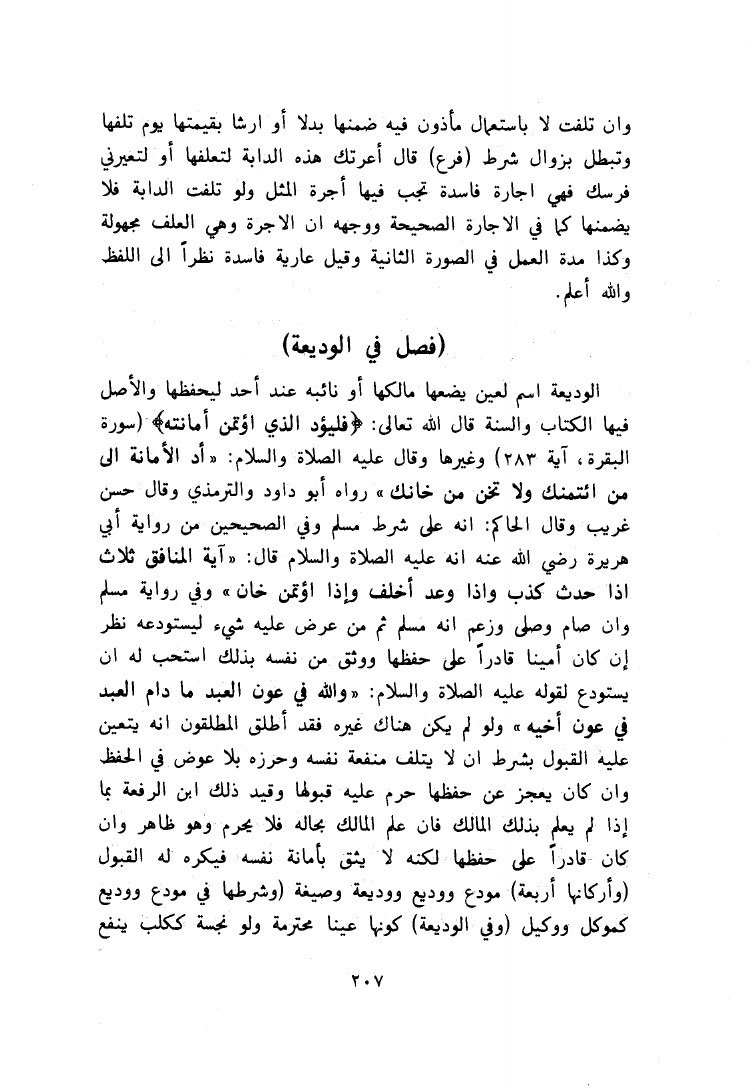 وان تلفت لا باستعمال مأذون فيه ضمنها بدلا أو ارشا بقيمتها يوم تلفها
وتبطل بزوال شرط (فرع) قال أعرتك هذه الدابة لتعلفها أو لتعيرني
فرسك فهي اجارة فاسدة تجب فيها أجرة المثل ولو تلفت الدابة فلا
يضمنها كما في الاجارة الصحيحة ووجهه ان الاجرة وهي العلف مجهولة
وكذا مدة العمل في الصورة الثانية وقيل عارية فاسدة نظراً الى اللفظ
والله أعلم.
(فصل في الوديعة)
الوديعة اسم لعين يضعها مالكها أو نائبه عند أحد ليحفظها والأصل
فيها الكتاب والسنة قال الله تعالى: ﴿فليؤد الذي اؤتمن أمانته﴾ (سورة
البقرة، آية ٢٨٣) وغيرها وقال عليه الصلاة والسلام: «أد الأمانة الى
من ائتمنك ولا تخن من خانك» رواه أبو داود والترمذي وقال حسن
غريب وقال الحاكم: انه على شرط مسلم وفي الصحيحين من رواية أبي
هريرة رضي الله عنه انه عليه الصلاة والسلام قال: «آية المنافق ثلاث
اذا حدث كذب واذا وعد أخلف وإذا اؤتمن خان» وفي رواية مسلم
وان صام وصلى وزعم انه مسلم ثم من عرض عليه شيء ليستودعه نظر
إن كان أمينا قادراً على حفظها ووثق من نفسه بذلك استحب له ان
يستودع لقوله عليه الصلاة والسلام: «والله في عون العبد ما دام العبد
في عون أخيه» ولو لم يكن هناك غيره فقد أطلق المطلقون انه يتعين
عليه القبول بشرط ان لا يتلف منفعة نفسه وحرزه بلا عوض في الحفظ
وان كان يعجز عن حفظها حرم عليه قبولها وقيد ذلك ابن الرفعة بما
إذا لم يعلم بذلك المالك فان علم المالك بحاله فلا يحرم وهو ظاهر وان
كان قادراً على حفظها لكنه لا يثق بأمانة نفسه فيكره له القبول
(وأركانها أربعة) مودع ووديع ووديعة وصيغة (وشرطها في مودع ووديع
كموكل ووكيل (وفي الوديعة) كونها عينا محترمة ولو نجسة ككلب ينفع
٢٠٧